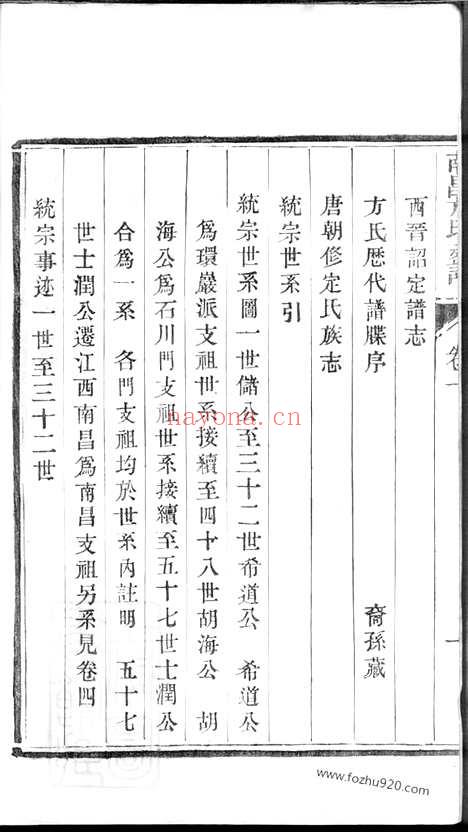 西晉詔定譜志
方氏歷代譜牒序 裔孫藏
唐朝修定氏族志
統宗世系引
統宗世系圖一世儲公至三十二世希道公 希道公
爲環巖派支祖世系接續至四十八世胡海公 胡
海公爲石川門支祖世系接續至五十七世士潤公
合爲一系 各門支祖均於世系內註明 五十七
世士潤公遷江西南昌爲南昌支祖另系見卷四
統宗事迹一世至三十二世
nayona.cn
www.fozhu920.com